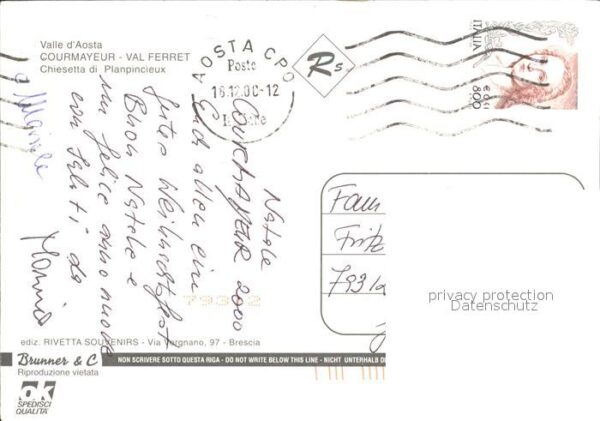 Valle d'Aosta
COURMAYEUR - VAL FERRET
Chiesetta di Planpincieux
AOSTA CPO
Poste
16.12.00-12
Rs
ITALIA
800
Natale
COURMAYEUR 2000
Euch allen ein
Gutes Weihnachtsfest
Buon Natale e
un felice anno nuovo
con saluti da
Monica
Fam
Fritz
793
79312
privacy protection
Datenschutz
ediz. RIVETTA SOUVENIRS - Via Vergnano, 97 - Brescia
Brunner & C
NON SCRIVERE SOTTO QUESTA RIGA - DO NOT WRITE BELOW THIS LINE - NICHT UNTERHALB
Riproduzione vietata
ok
SPEDISCI
QUALITA'